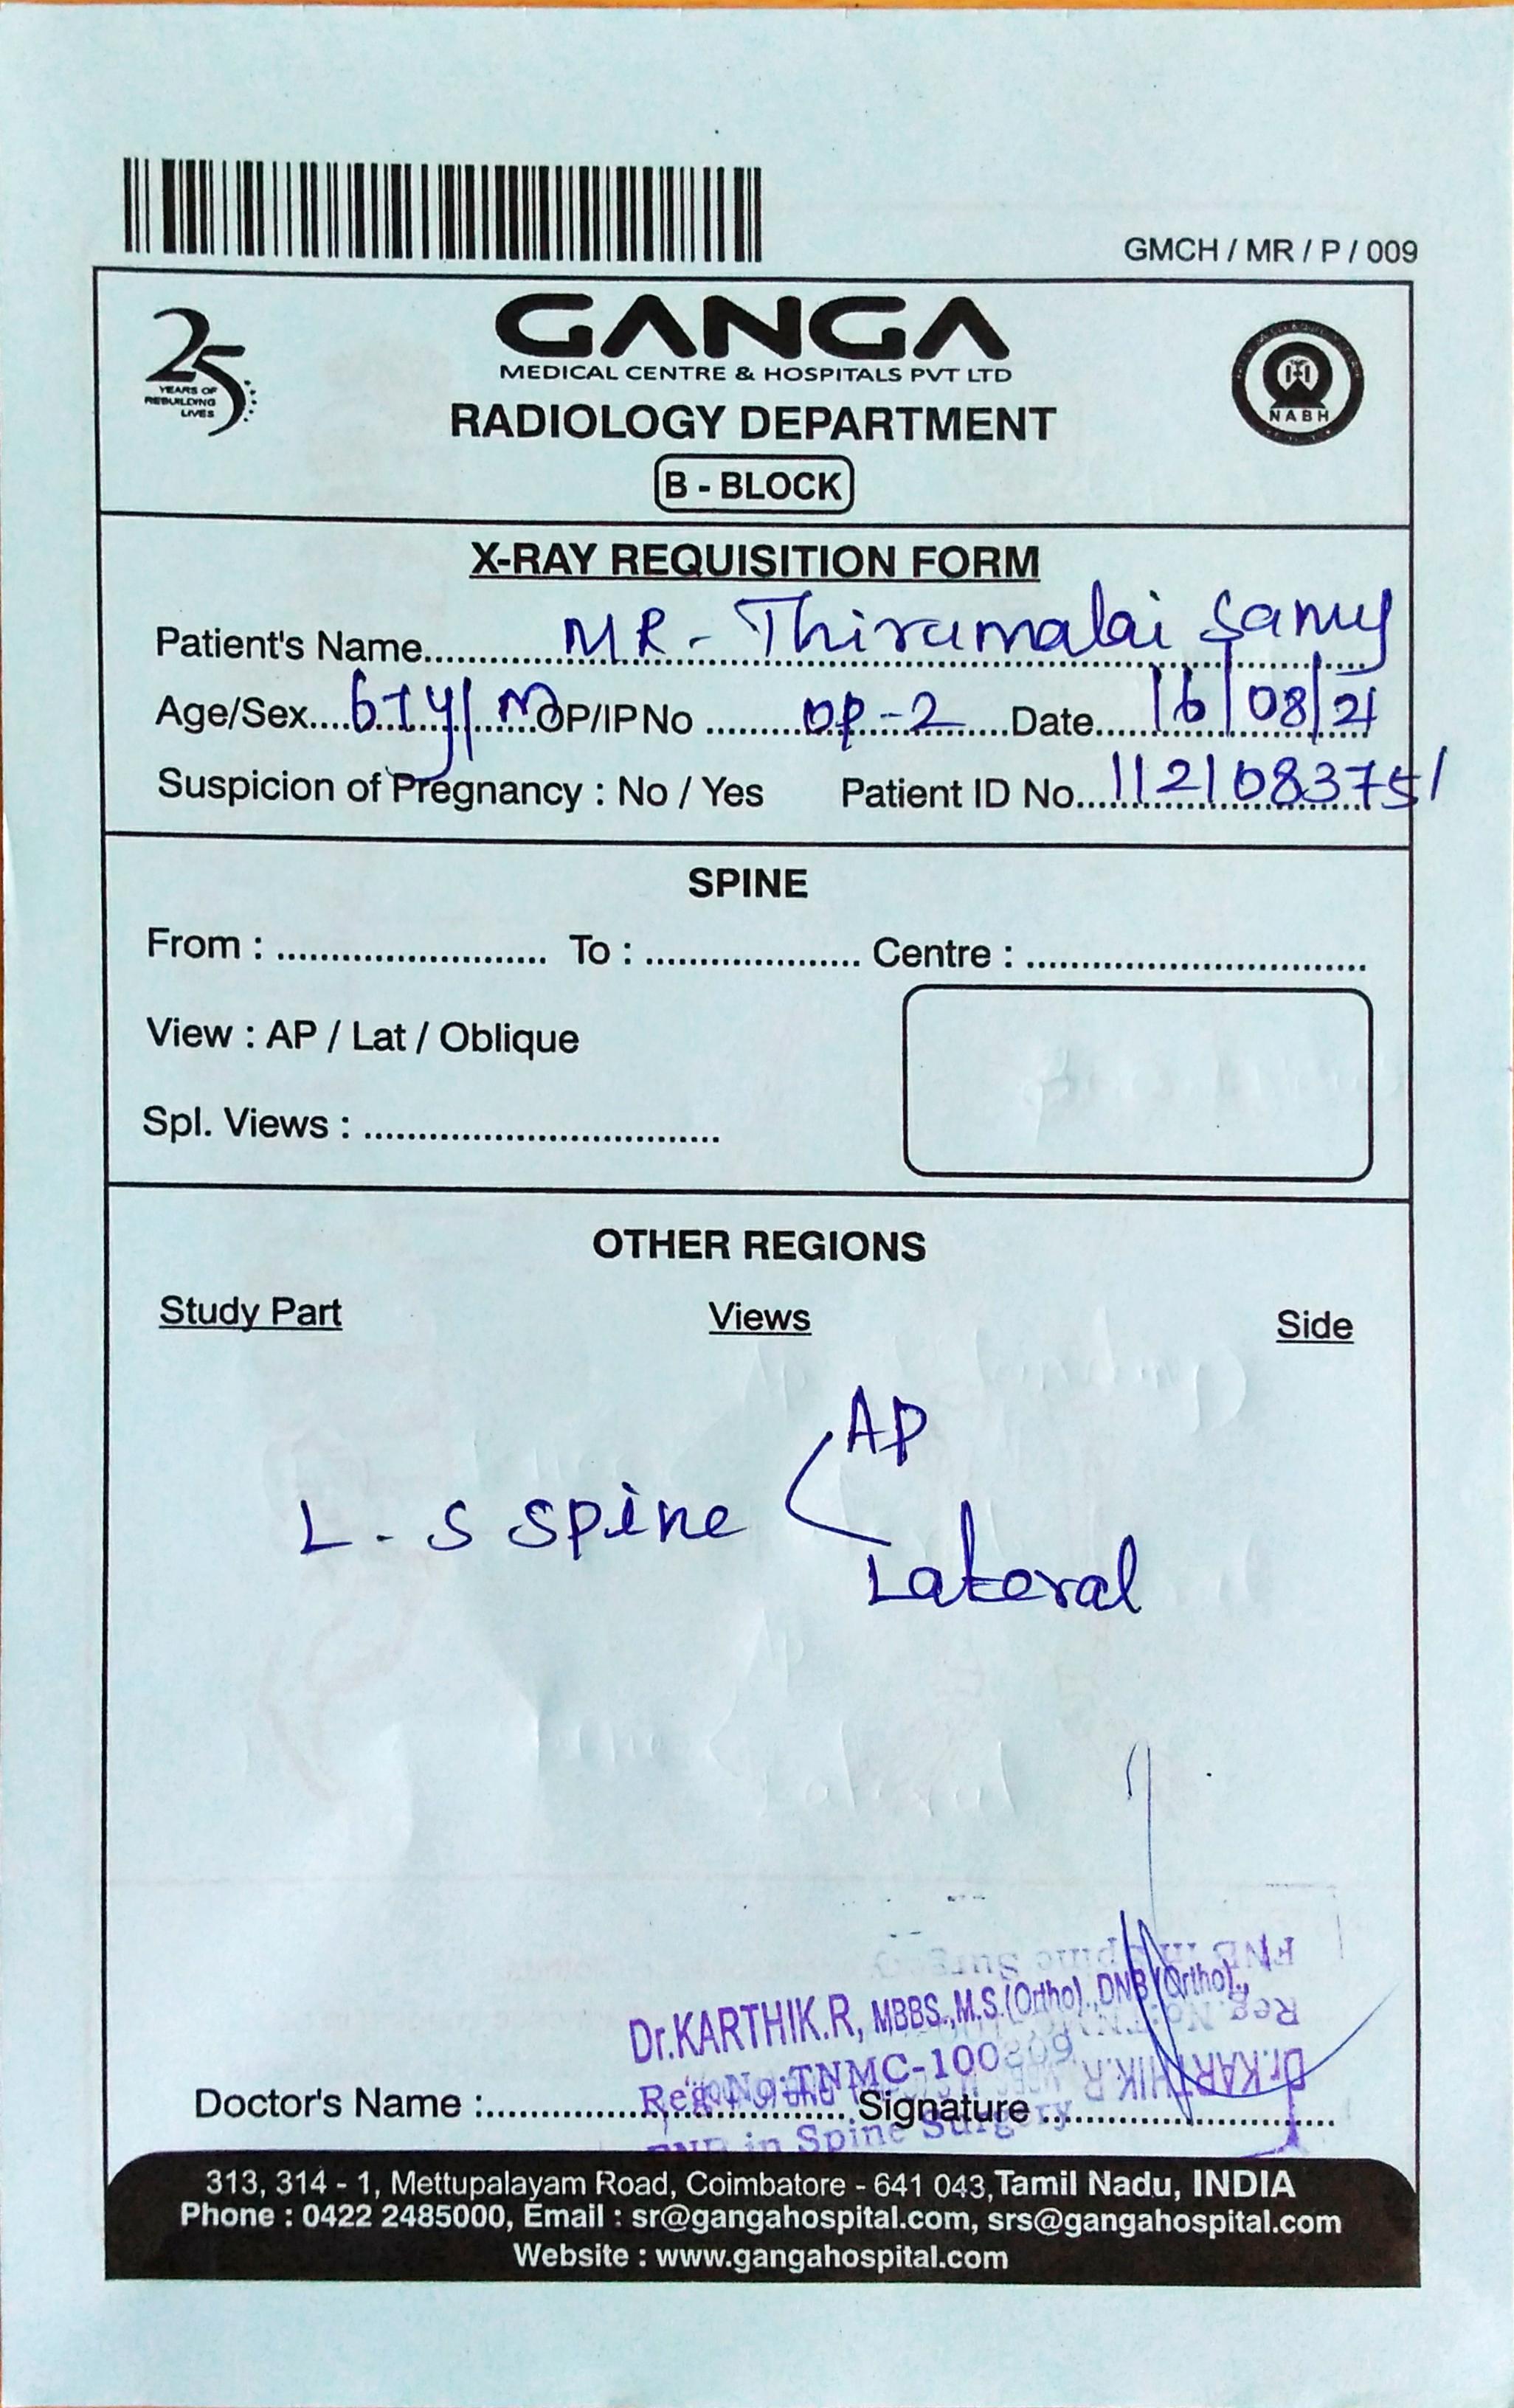 GMCH / MR / P / 009
25
YEARS OF
REBUILDING
LIVES
GANGA
MEDICAL CENTRE & HOSPITALS PVT LTD
RADIOLOGY DEPARTMENT
B - BLOCK
NABH
X-RAY REQUISITION FORM
Patient's Name.......... MR - Thirumalai Samy
Age/Sex.... 61y/M OP/IP No ....... OP-2 ....Date.... 16/08/21
Suspicion of Pregnancy : No / Yes Patient ID No.... 1121083751
SPINE
From : .......... To : .......... Centre : ..........
View : AP / Lat / Oblique
Spl. Views : ..........
OTHER REGIONS
Study Part Views Side
AP
L - S Spine
Lateral
Dr.KARTHIK.R, MBBS.,M.S.(Ortho).,DNB(Ortho).,
Reg.No:TNMC-100809
Doctor's Name :.......... Signature ..........
FNB in Spine Surgery
313, 314 - 1, Mettupalayam Road, Coimbatore - 641 043, Tamil Nadu, INDIA
Phone : 0422 2485000, Email : sr@gangahospital.com, srs@gangahospital.com
Website : www.gangahospital.com